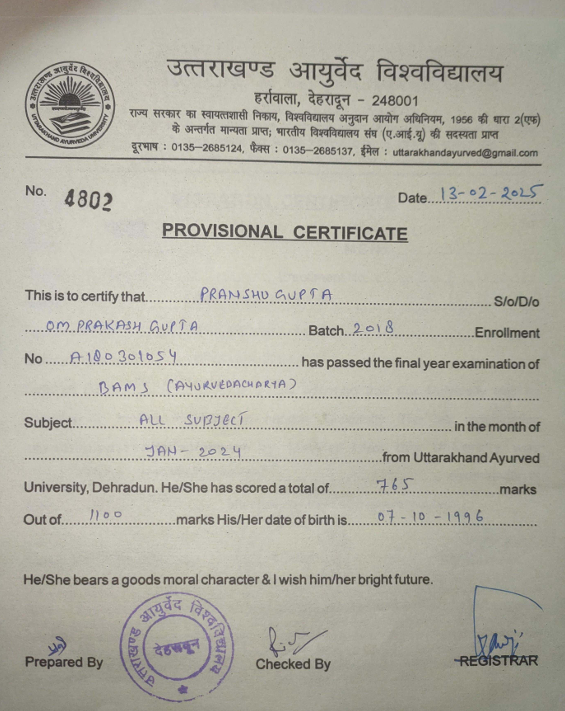 उत्तराखण्ड आयुर्वेद विश्वविद्यालय
UTTARAKHAND AYURVED UNIVERSITY
उत्तराखण्ड आयुर्वेद विश्वविद्यालय
हर्रावाला, देहरादून - 248001
राज्य सरकार का स्वायत्तशासी निकाय, विश्वविद्यालय अनुदान आयोग अधिनियम, 1956 की धारा 2(एफ)
के अन्तर्गत मान्यता प्राप्त, भारतीय विश्वविद्यालय संघ (ए.आई.यू) की सदस्यता प्राप्त
दूरभाष : 0135-2685124, फैक्स : 0135-2685137, ईमेल : uttarakhandayurved@gmail.com
No. 4802 Date...13-02-2025
PROVISIONAL CERTIFICATE
This is to certify that PRANSHU GUPTA S/o/D/o
OM PRAKASH GUPTA Batch 2018 Enrollment
No A180301054 has passed the final year examination of
BAMS (AYURVEDACHARYA)
Subject ALL SUBJECT in the month of
JAN-2024 from Uttarakhand Ayurved
University, Dehradun. He/She has scored a total of 765 marks
Out of 1100 marks His/Her date of birth is 07-10-1996
He/She bears a goods moral character & I wish him/her bright future.
उत्तराखण्ड आयुर्वेद विश्वविद्यालय
देहरादून
Prepared By Checked By REGISTRAR